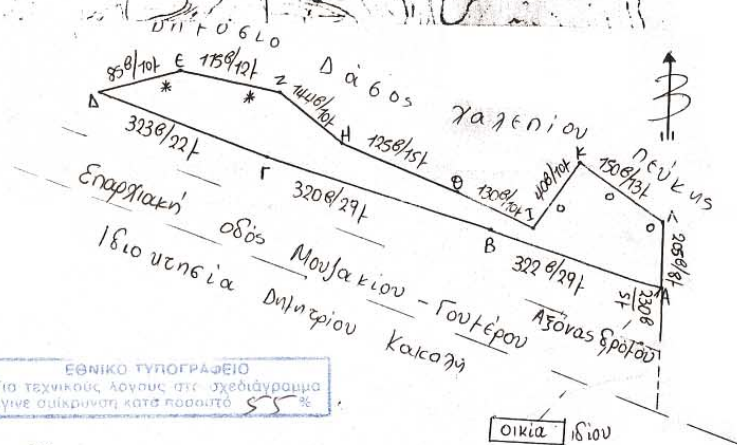 Δάσος χαλεπίου πεύκης
Β
85β/10τ
Ε
115β/12τ
Ζ
144β/10τ
Δ
323β/22τ
Γ
Η
125β/15τ
Θ
130β/10τ
Ι
40β/10τ
Κ
150β/13τ
Λ
205β/8τ
320β/29τ
Β
322β/29τ
Α
230β
5τ
Επαρχιακή οδός Μουζακίου - Γουμέρου
Άξονας δρόμου
Ιδιοκτησία Δημητρίου Κακαλή
ΕΘΝΙΚΟ ΤΥΠΟΓΡΑΦΕΙΟ
Για τεχνικούς λόγους στο σχεδιάγραμμα
έγινε σμίκρυνση κατά ποσοστό 55 %
οικία ιδίου